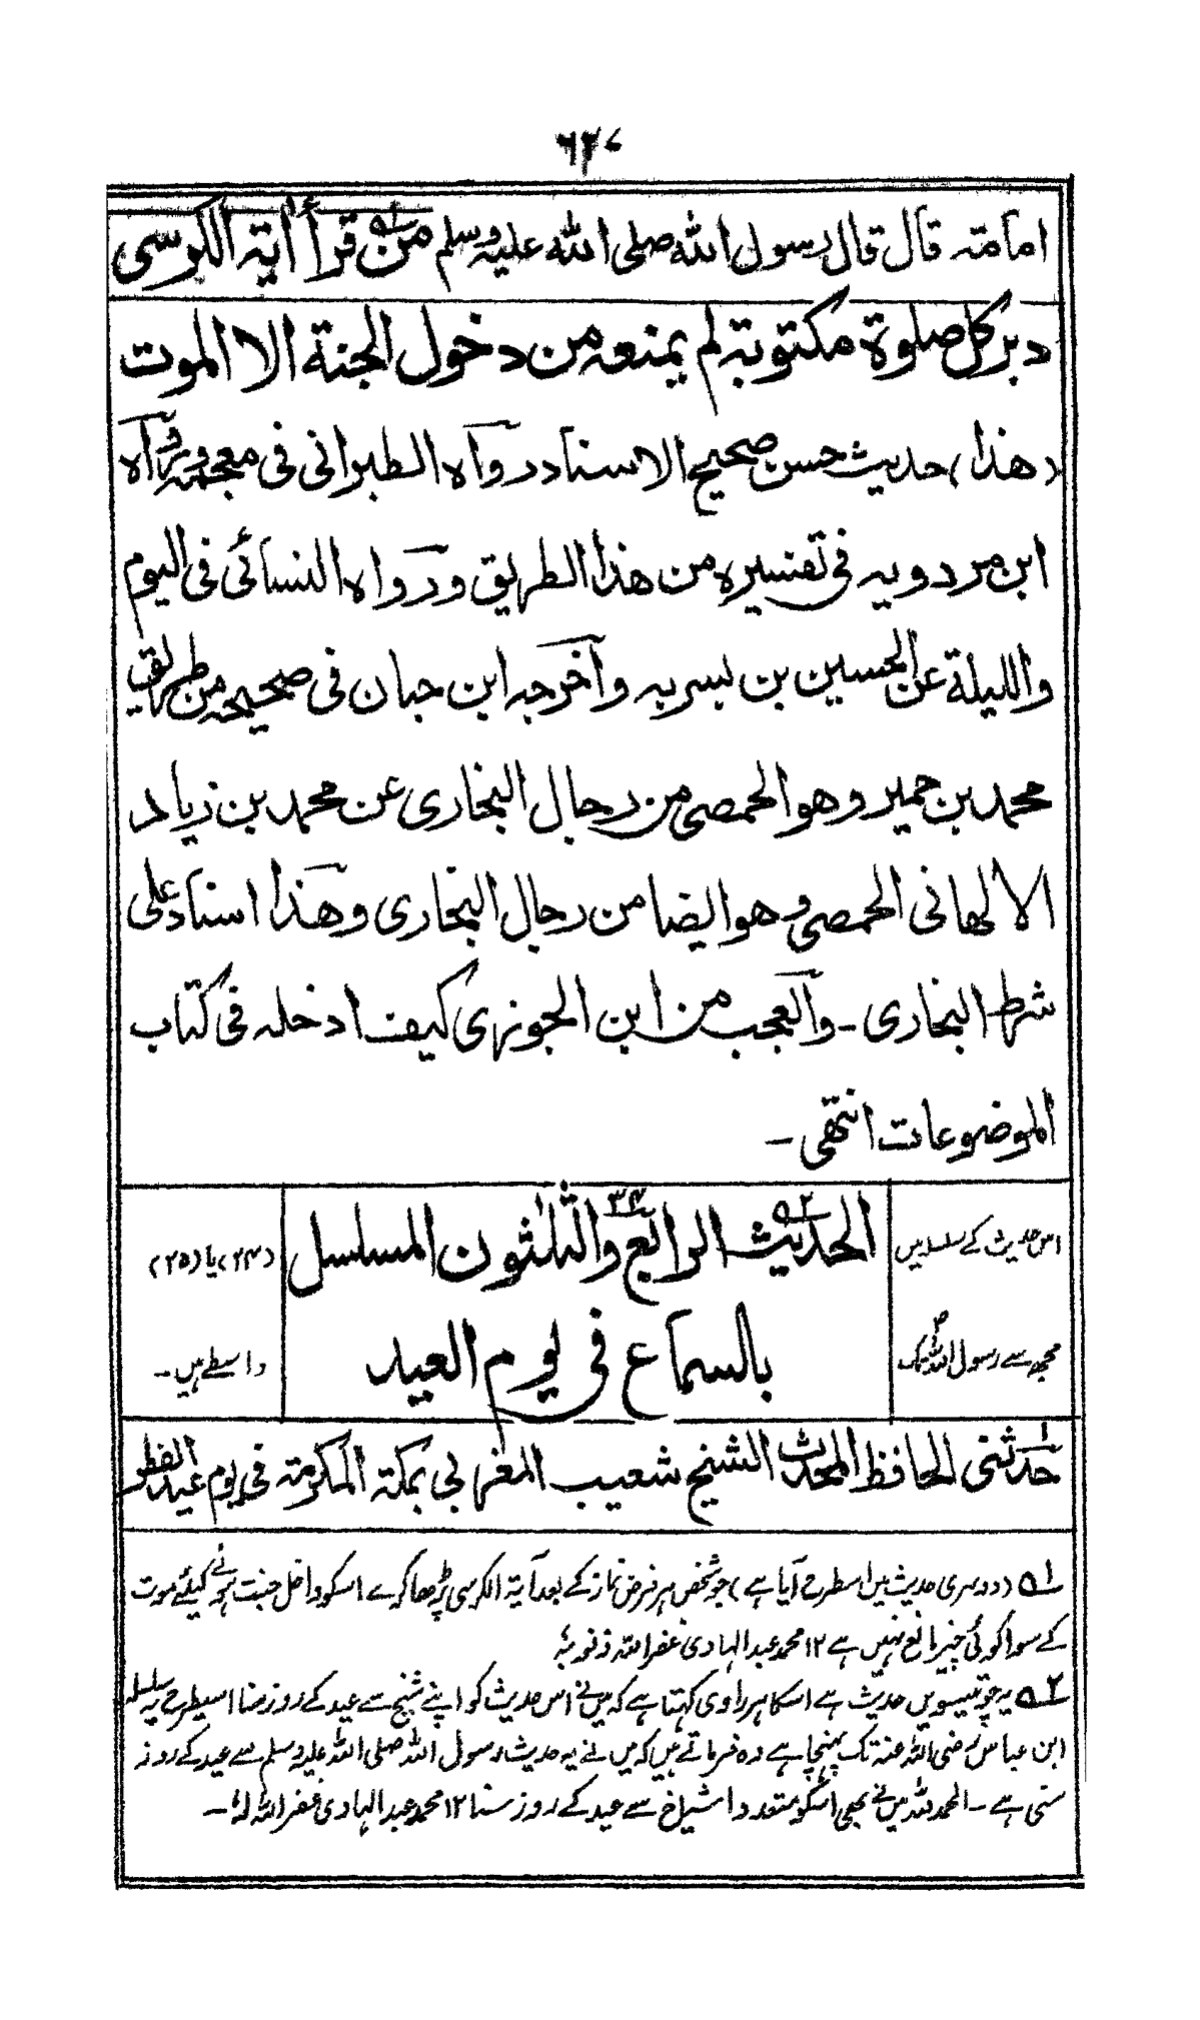 امامة قال قال رسول الله صلى الله عليه وسلم من قرأ اية الكرسى
دبر كل صلوة مكتوبة لم يمنعه من دخول الجنة الا الموت
(هذا) حديث حسن صحيح الاسناد رواه الطبرانى فى معجمه ورواه
ابن مردويه فى تفسيره من هذا الطريق ورواه النسائى فى اليوم
والليلة عن الحسين بن بسر به وآخرجه ابن حبان فى صحيحه من طريق
محمد بن حمير وهو الحمصى من رجال البخارى عن محمد بن زياد
الالهانى الحمصى وهو ايضا من رجال البخارى وهذا اسناد على
شرط البخارى ـ والعجب من ابن الجوزى كيف ادخله فى كتاب
الموضوعات انتهى ـ
اس حدیث کے سلسلہ میں
مجھ سے رسول اللہ ؐ تک
الحديث الرابع والثلثون المسلسل
بالسماع فى يوم العيد
(۲۴) یا (۲۵)
واسطے ہیں ۔
حدثنى الحافظ المحدث الشيخ شعيب المغربى بمكة المكرمة فى يوم عيد الفطر
۱ (دوسری حدیث میں اسطرح آیا ہے) جو شخص ہر فرض نماز کے بعد آیۃ الکرسی پڑھا کرے اسکو داخل جنت ہونے کیلئے موت
کے سوا کوئی چیز مانع نہیں ہے ۱۲ محمد عبدالہادی غفر اللہ ذنوبہ
۲ یہ چوتیسویں حدیث ہے اسکا ہر راوی کہتا ہے کہ میں نے اس حدیث کو اپنے شیخ سے عید کے روز سنا اسیطرح یہ سلسلہ
ابن عباس رضی اللہ عنہ تک پہنچا ہے وہ فرماتے ہیں کہ میں نے یہ حدیث رسول اللہ صلی اللہ علیہ وسلم سے عید کے روز
سنی ہے ۔ الحمد للہ میں نے بھی اسکو متعدد اشیاخ سے عید کے روز سنا ۱۲ محمد عبدالہادی غفر اللہ لہ ۔